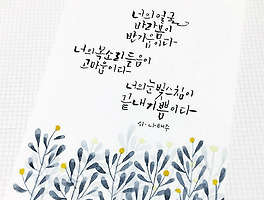 너의 얼굴
바라봄이
반가움이다
너의 목소리 들음이
고마움이다
너의 눈빛 스침이
끝내 기쁨이다
시. 나태주